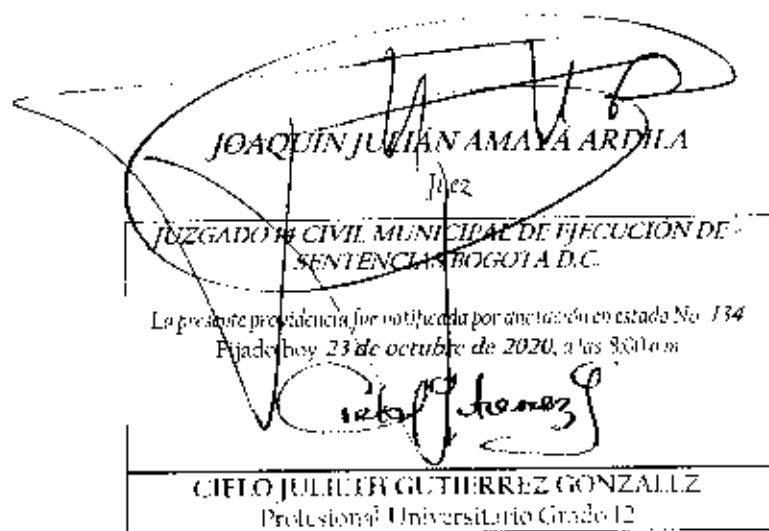 JOAQUÍN JULIÁN AMAYA ARDILA
Juez
JUZGADO CIVIL MUNICIPAL DE EJECUCIÓN DE
SENTENCIAS BOGOTA D.C.
La presente providencia fue notificada por anotación en estado No. 134
Fijado hoy 23 de octubre de 2020, a las 8:00 a m
CIELO JULIETH GUTIERREZ GONZALEZ
Profesional Universitario Grado 12